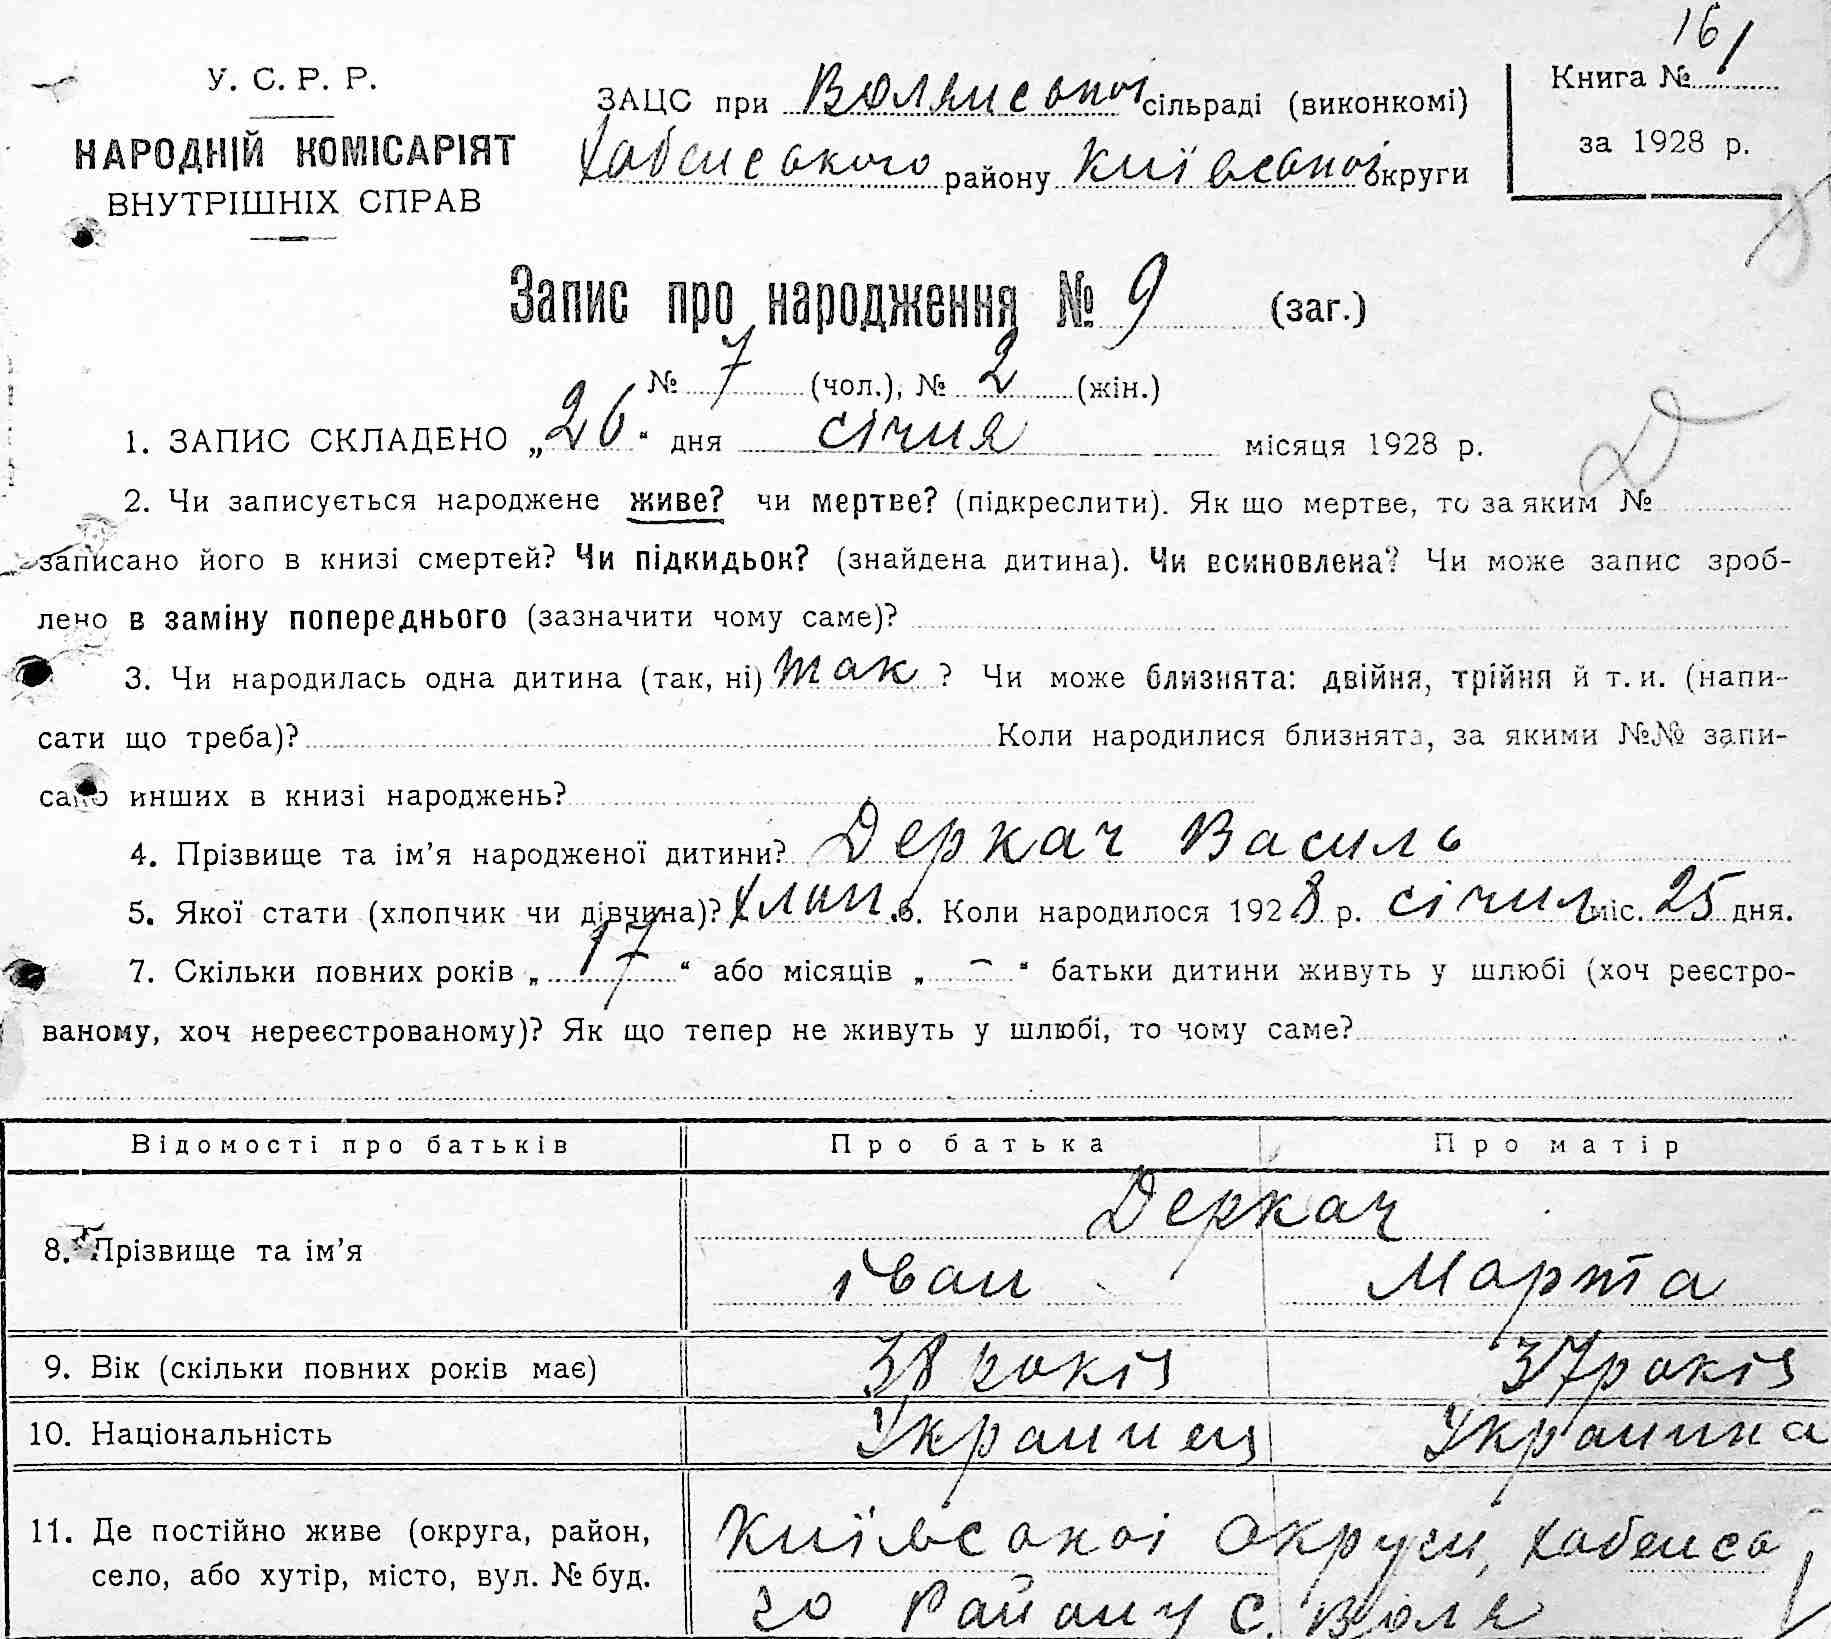 161
У. С. Р. Р.
НАРОДНІЙ КОМІСАРІЯТ
ВНУТРІШНІХ СПРАВ
ЗАЦС при Волянської сільраді (виконкомі)
Хабенського району Київської округи
Книга №
за 1928 р.
Запис про народження № 9 (заг.)
№ 7 (чол.), № 2 (жін.)
1. ЗАПИС СКЛАДЕНО „26“ дня січня місяця 1928 р.
2. Чи записується народжене живе? чи мертве? (підкреслити). Як що мертве, то за яким №
записано його в книзі смертей? Чи підкидьок? (знайдена дитина). Чи всиновлена? Чи може запис зроб-
лено в заміну попереднього (зазначити чому саме)?
3. Чи народилась одна дитина (так, ні) так ? Чи може близнята: двійня, трійня й т. и. (напи-
сати що треба)? Коли народилися близнята, за якими №№ запи-
сано инших в книзі народжень?
4. Прізвище та ім’я народженої дитини? Деркач Василь
5. Якої стати (хлопчик чи дівчина)? хлоп. 6. Коли народилося 1928 р. січня міс. 25 дня.
7. Скільки повних років „17“ або місяців „–“ батьки дитини живуть у шлюбі (хоч реєстро-
ваному, хоч нереєстрованому)? Як що тепер не живуть у шлюбі, то чому саме?
Відомості про батьків Про батька Про матір
8. Прізвище та ім’я Деркач
Іван Марта
9. Вік (скільки повних років має) 38 років 37 років
10. Національність Украинец Украинка
11. Де постійно живе (округа, район, Київської округи, Хабенсь
село, або хутір, місто, вул. № буд. го Району с. Воля